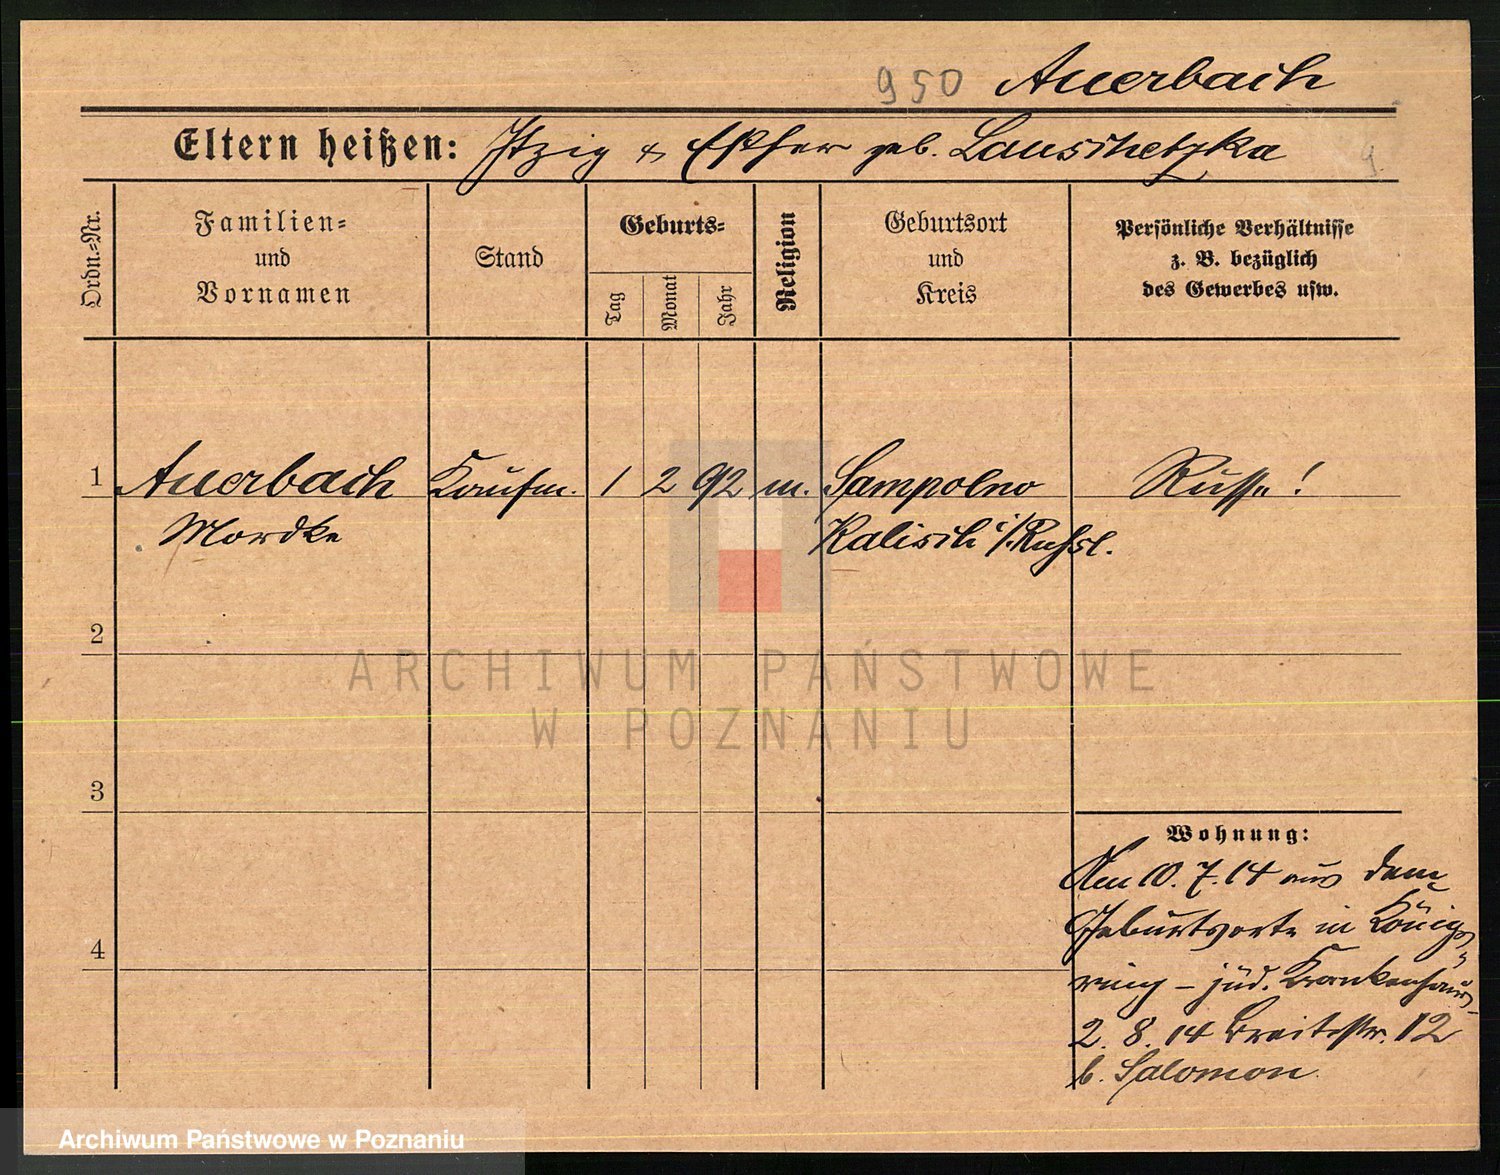 950 Auerbach
Eltern heißen: Itzig & Esther geb. Lauschetzka
9.
Ordn.-Nr.
Familien-
und
Vornamen
Stand
Geburts-
Tag
Monat
Jahr
Religion
Geburtsort
und
Kreis
Persönliche Verhältnisse
z. B. bezüglich
des Gewerbes usw.
1 Auerbach Kaufm. 1 2 92 m. Sampolno Russe!
Mordke Kalisch i/Russl.
2
3
4
Wohnung:
Am 10. 7. 14 aus dem
Geburtsorte in Königs-
ring – jüd. Krankenhaus
2. 8. 14 Breitestr. 12
b. Salomon.
ARCHIWUM PAŃSTWOWE
W POZNANIU
Archiwum Państwowe w Poznaniu